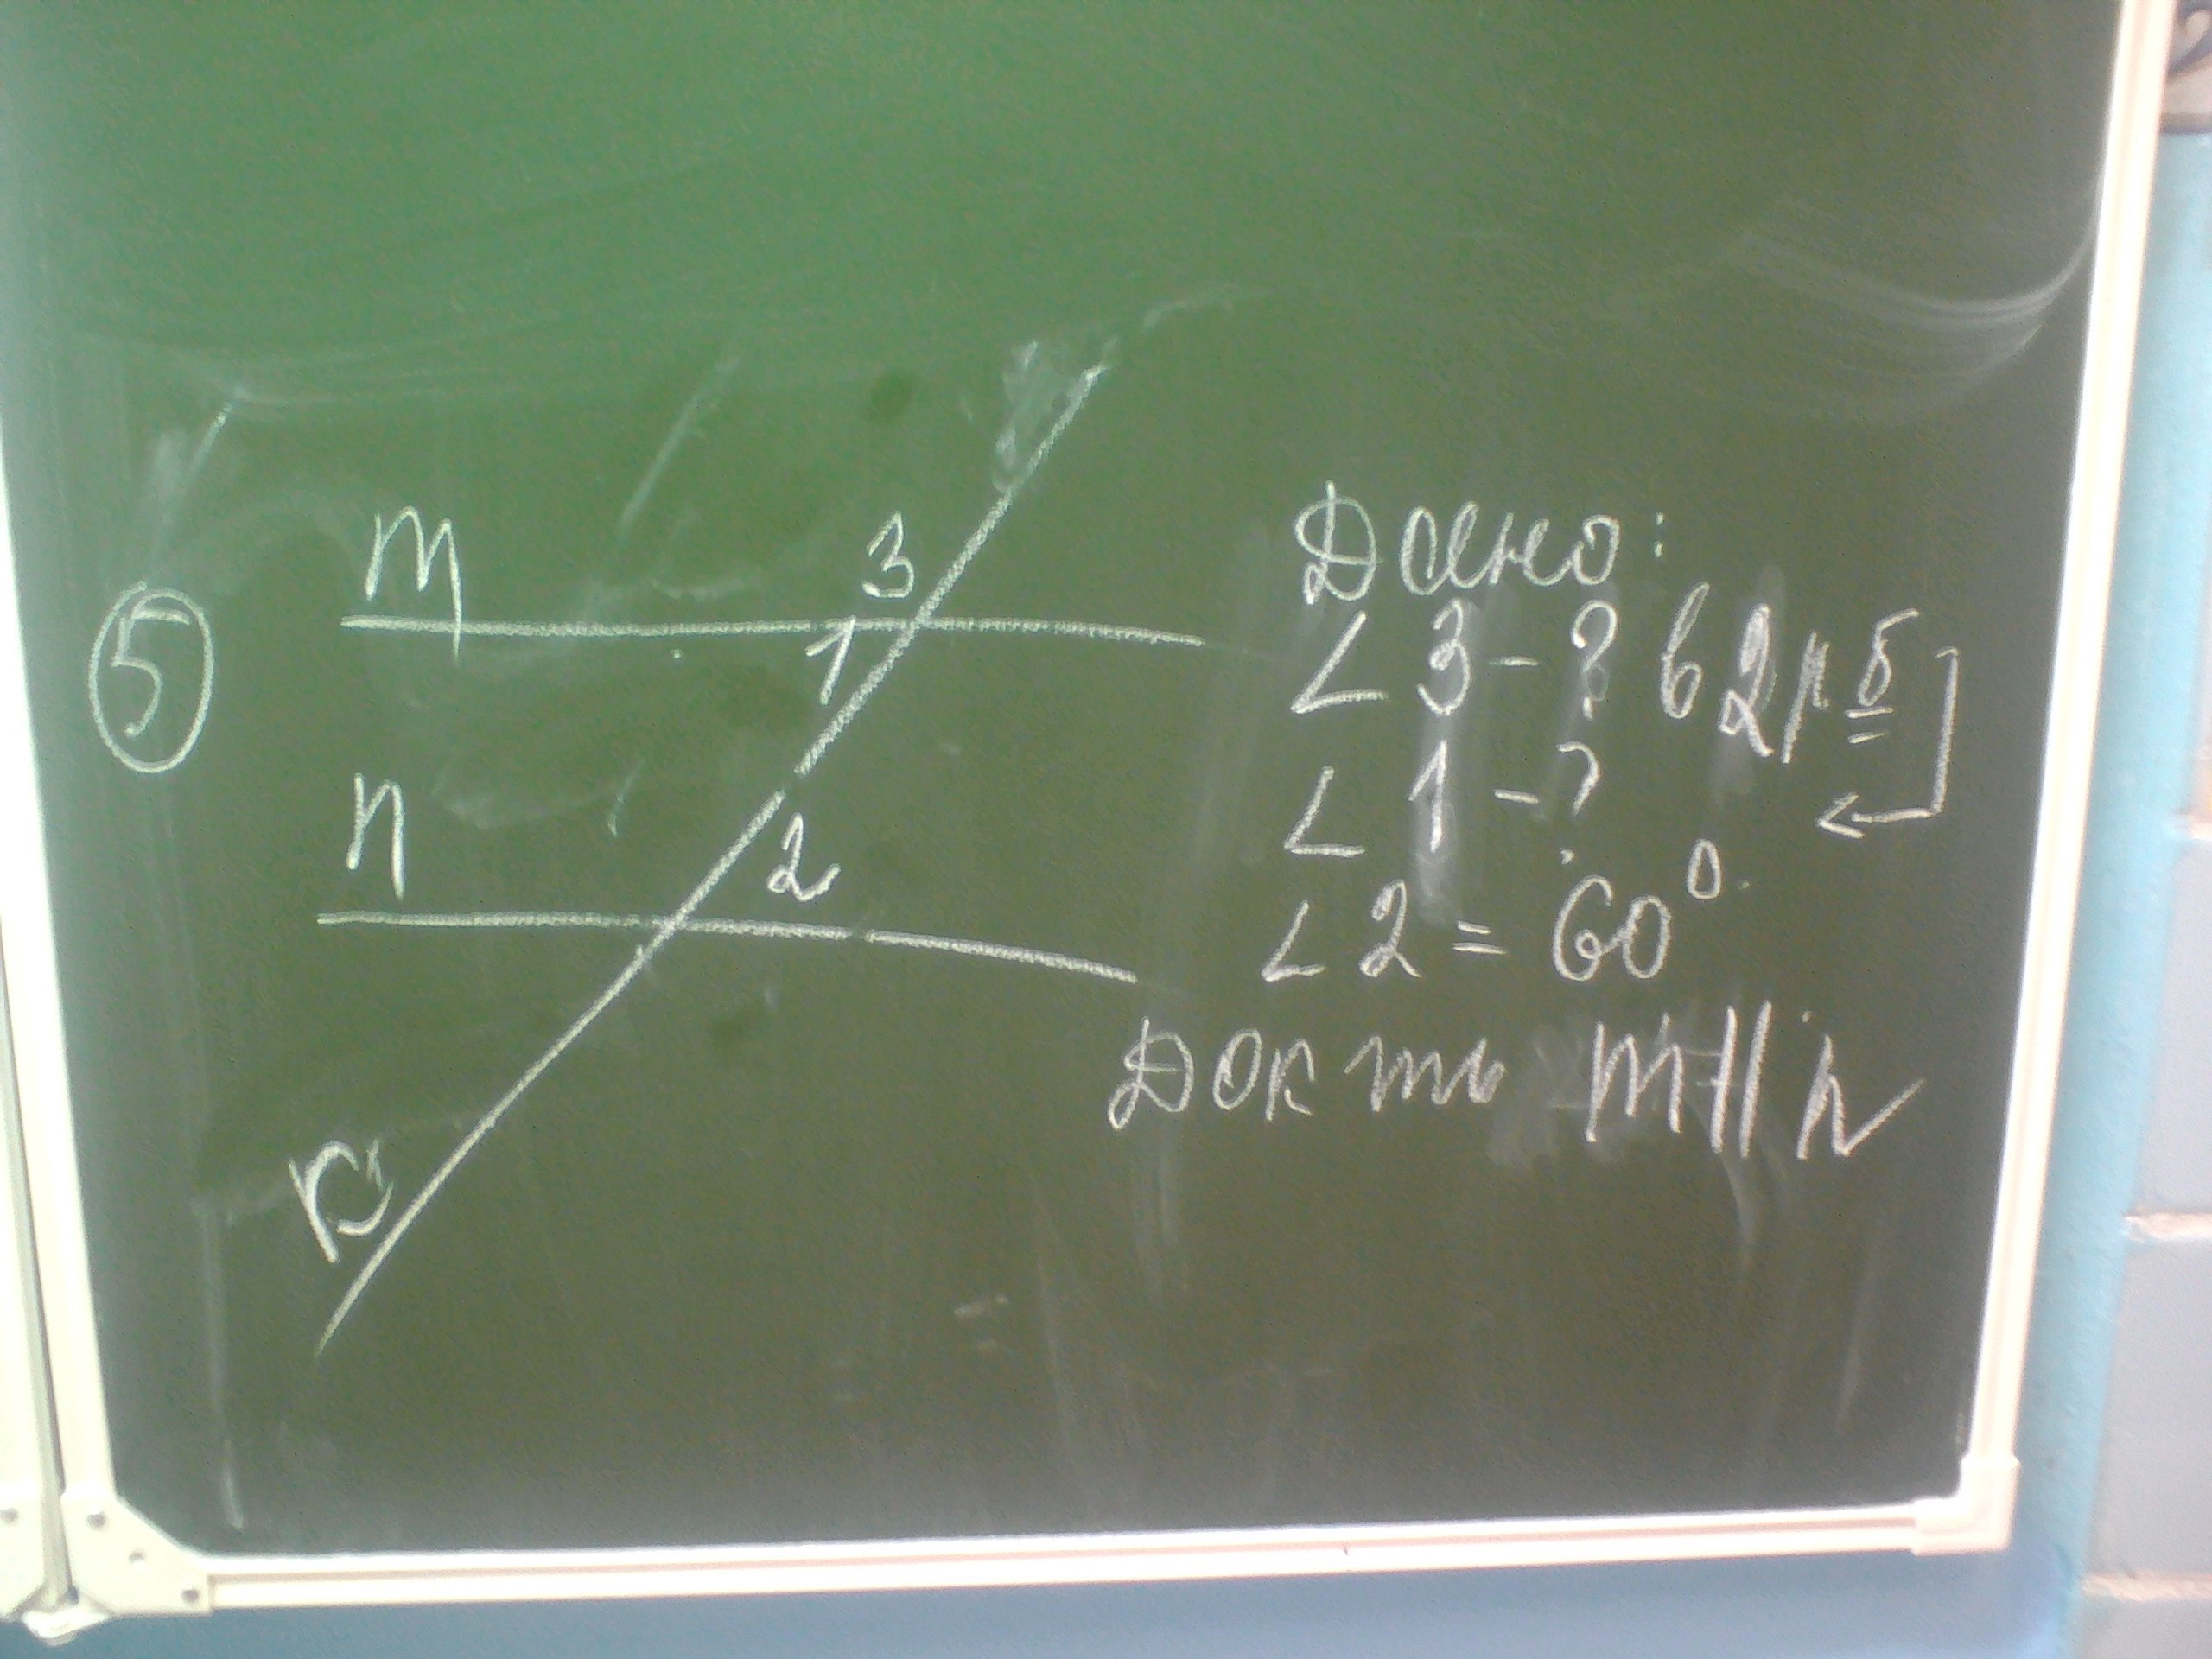 5
m
3
1
n
2
к
Дано:
∠ 3 - ? в 2 р б
∠ 1 - ?
∠ 2 = 60°.
Док ть m || n